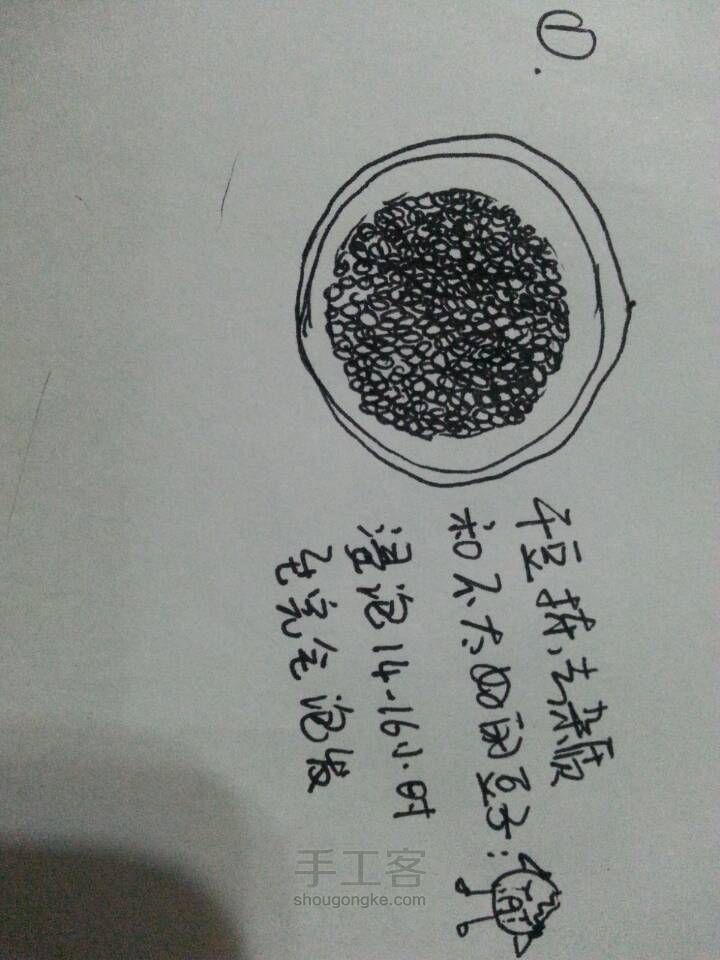 ①.
干豆挑去杂质
和不太好的豆子:
浸泡14-16小时
至完全泡发
TAT
手工客
shougongke.com